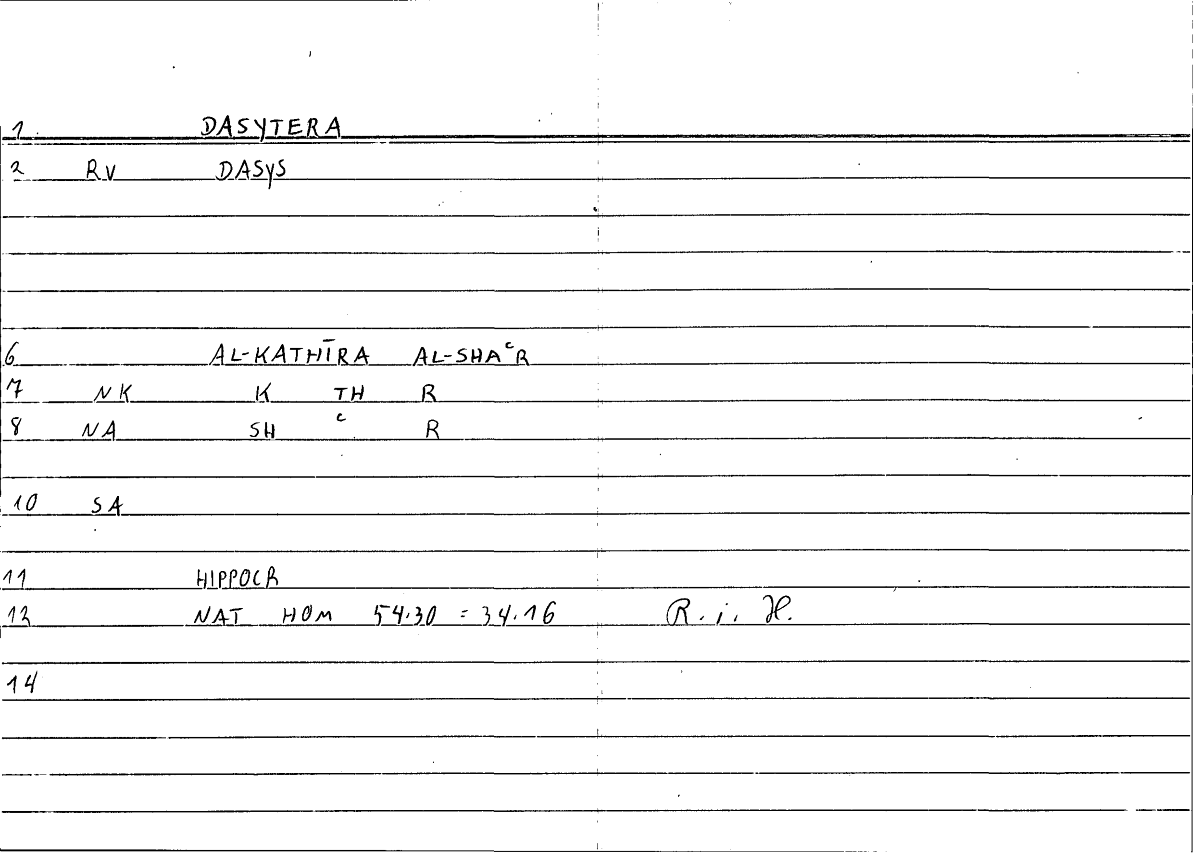 1 DASYTERA
2 RV DASYS
6 AL-KATHĪRA AL-SHAᶜR
7 NK K TH R
8 NA SH ᶜ R
10 SA
11 HIPPOCR
12 NAT HOM 54.30 = 34.16 R. i. H.
14